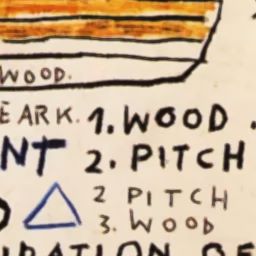 WOOD.
E ARK. 1. WOOD.
NT 2. PITCH
2 PITCH
3. WOOD